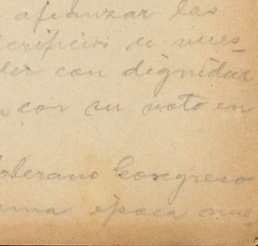 afianzar las
crificios de nues-
der con dignidad
con su voto en
oberano Congreso
una epoca nue-